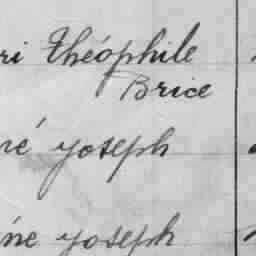 ri Théophile
Brice
né Joseph
ine Joseph